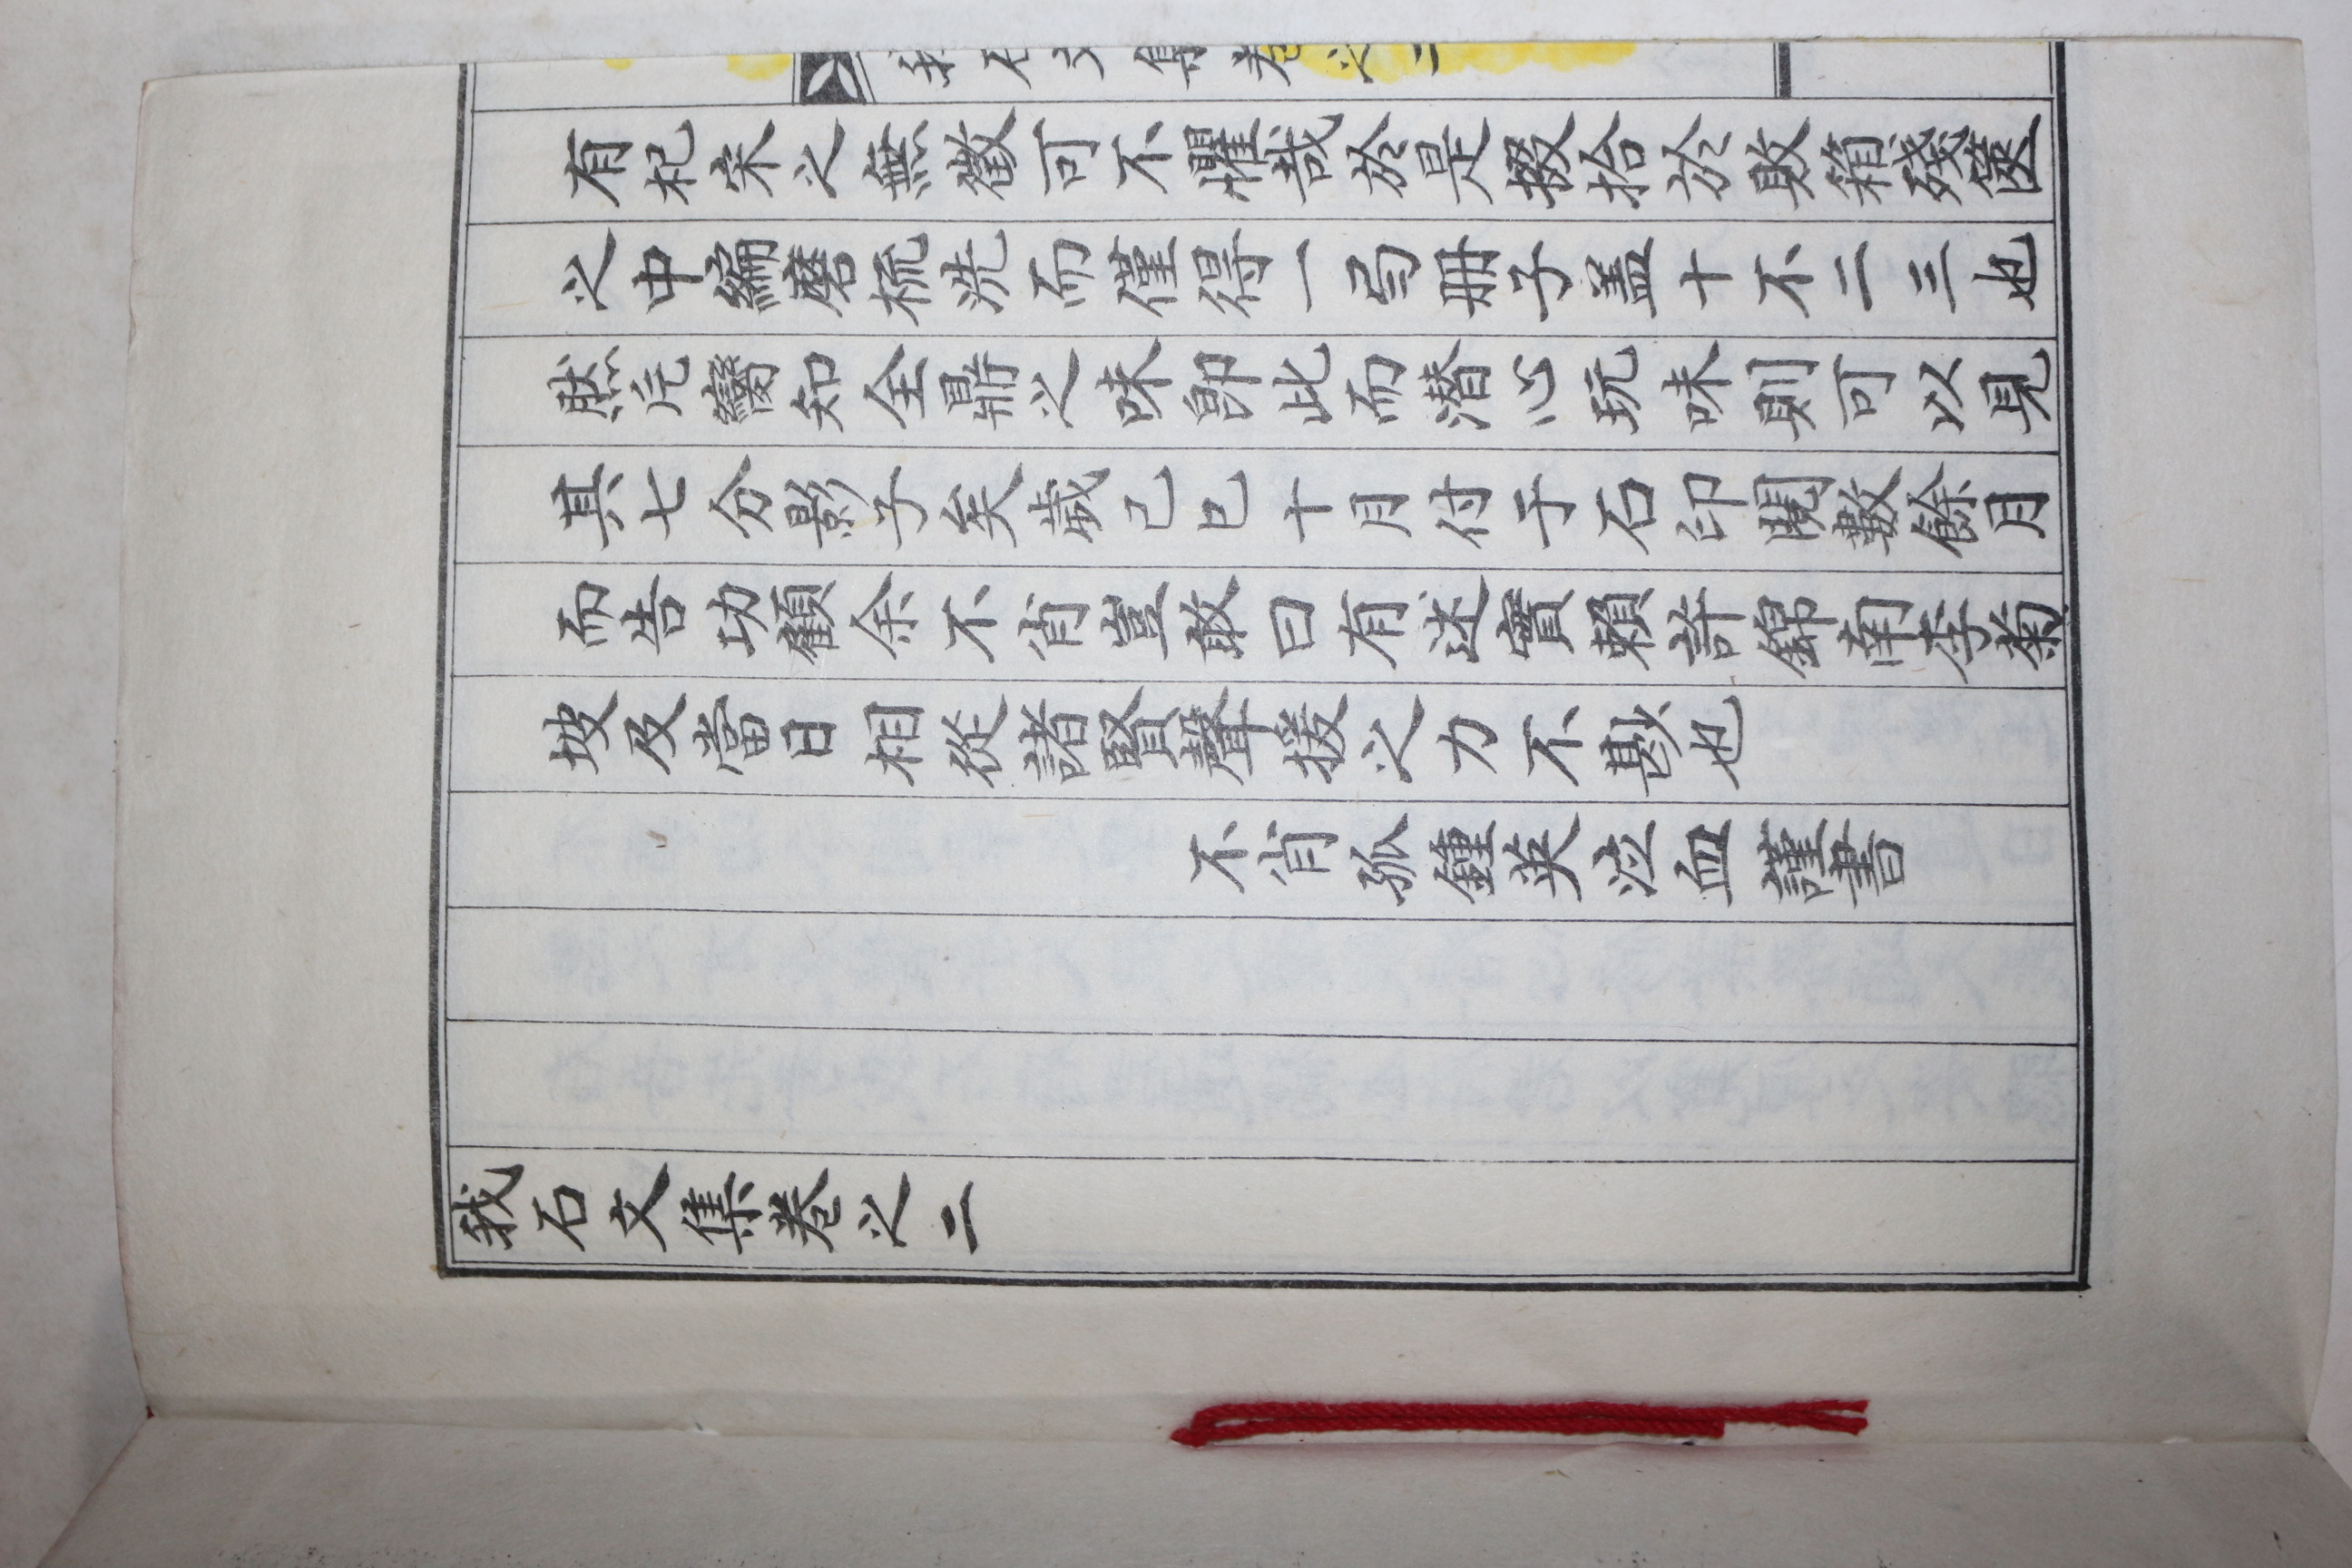 我石文集卷之二
有杞宋之無徵可不懼哉於是掇拾於敗箱殘篋
之中編磨梳洗而僅得一弓冊子盖十不二三也
然片臠知全鼎之味卽此而潜心玩味則可以見
其七分影子矣歲己巳十月付于石印閱數餘月
而告功顧余不肖豈敢曰有述實賴許錦南李菊
坡及當日相從諸賢聲援之力不尠也
不肖孤鍾英泣血謹書
我石文集卷之二